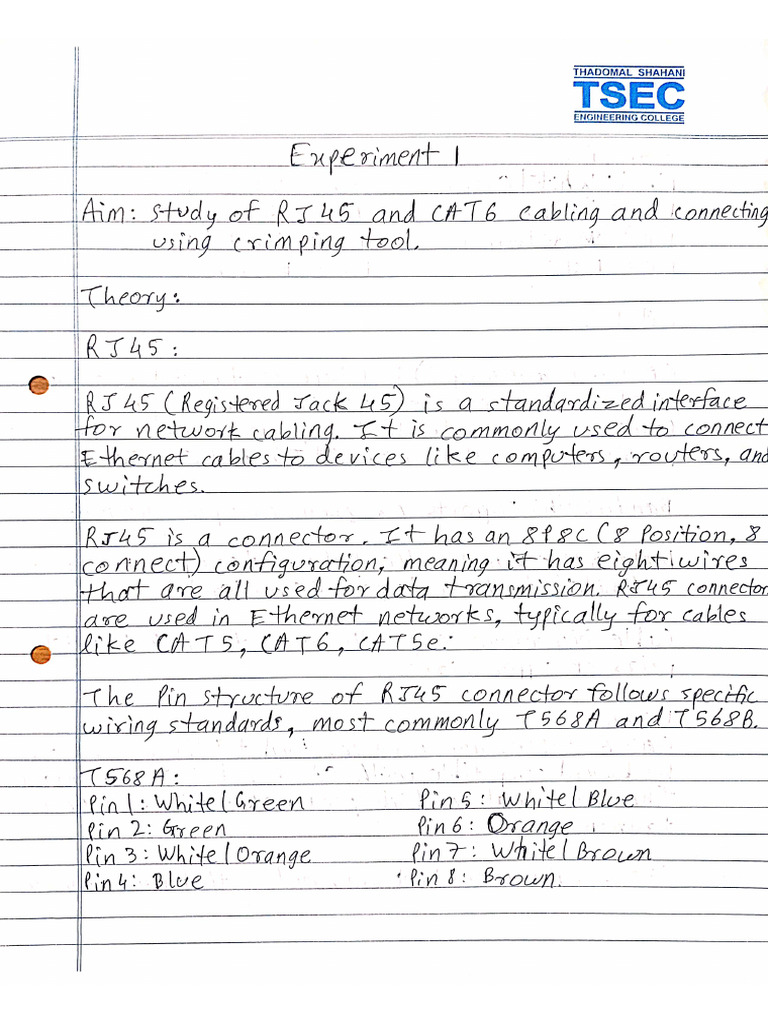 THADOMAL SHAHANI
TSEC
ENGINEERING COLLEGE
Experiment 1
Aim: Study of RJ45 and CAT6 cabling and connecting
using crimping tool.
Theory:
RJ45:
RJ45 (Registered Jack 45) is a standardized interface
for network cabling. It is commonly used to connect
Ethernet cables to devices like computers, routers, and
switches.
RJ45 is a connector. It has an 8P8C (8 Position, 8
connect) configuration, meaning it has eight wires
that are all used for data transmission. RJ45 connector
are used in Ethernet networks, typically for cables
like CAT5, CAT6, CAT5e.
The Pin structure of RJ45 connector follows specific
wiring standards, most commonly T568A and T568B.
T568A:
Pin 1: White/Green Pin 5: White/Blue
Pin 2: Green Pin 6: Orange
Pin 3: White/Orange Pin 7: White/Brown
Pin 4: Blue Pin 8: Brown.